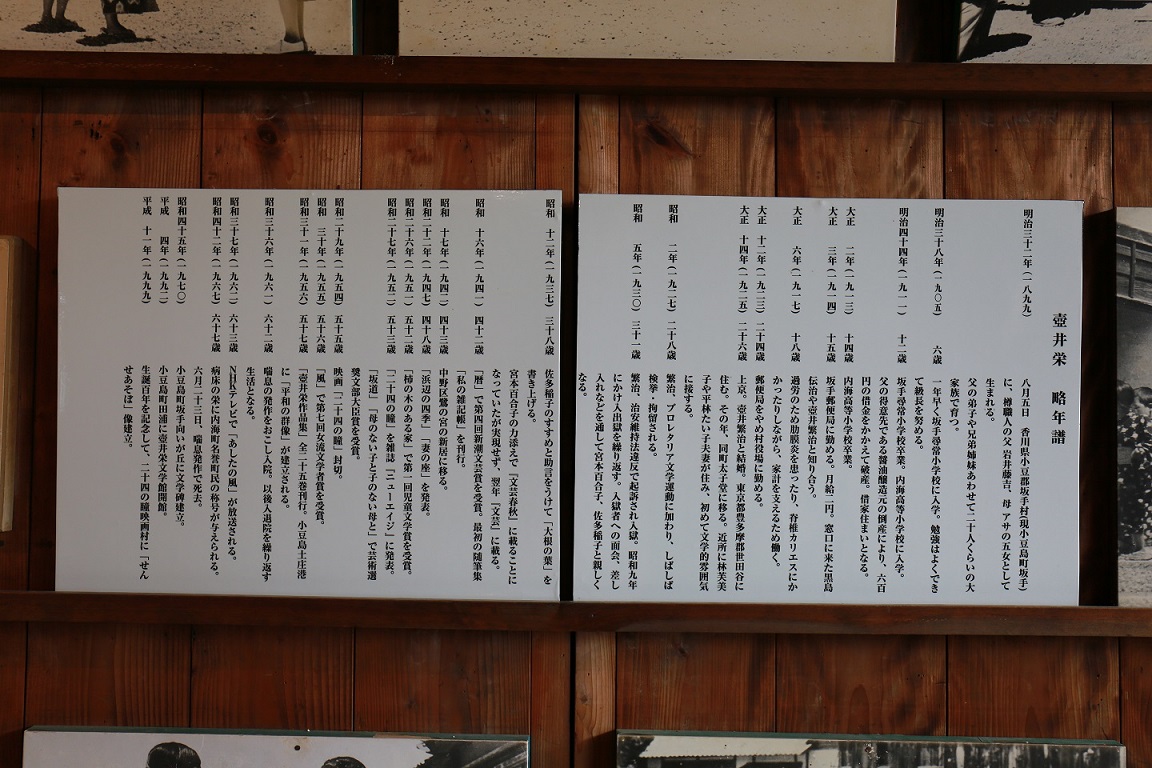 壺井栄　略年譜
明治三十二年(一八九九)　八月五日　香川県小豆郡坂手村(現小豆島町坂手)
に、樽職人の父 岩井藤吉、母 アサの五女として
生まれる。
父の弟子や兄弟姉妹あわせて二十人くらいの大
家族で育つ。
明治三十八年(一九〇五)　六歳　一年早く坂手尋常小学校に入学。勉強はよくでき
て級長を努める。
明治四十四年(一九一一)　十二歳　坂手尋常小学校卒業。内海高等小学校に入学。
父の得意先である醤油醸造元の倒産により、六百
円の借金をかかえて破産。借家住まいとなる。
大正　二年(一九一三)　十四歳　内海高等小学校卒業。
大正　三年(一九一四)　十五歳　坂手郵便局に勤める。月給二円。窓口に来た黒島
伝治や壺井繁治と知り合う。
大正　六年(一九一七)　十八歳　過労のため肋膜炎を患ったり、脊椎カリエスにか
かったりしながら、家計を支えるため働く。
大正　十二年(一九二三)　二十四歳　郵便局をやめ村役場に勤める。
大正　十四年(一九二五)　二十六歳　上京。壺井繁治と結婚。東京都豊多摩郡世田谷に
住む。その年、同町太子堂に移る。近所に林芙美
子や平林たい子夫妻が住み、初めて文学的雰囲気
に接する。
昭和　二年(一九二七)　二十八歳　繁治、プロレタリア文学運動に加わり、しばしば
検挙・拘留される。
昭和　五年(一九三〇)　三十一歳　繁治、治安維持法違反で起訴され入獄。昭和九年
にかけ入出獄を繰り返す。入獄者への面会、差し
入れなどを通して宮本百合子、佐多稲子と親しく
なる。
昭和　十二年(一九三七)　三十八歳　佐多稲子のすすめと助言をうけて「大根の葉」を
書き上げる。
宮本百合子の力添えで「文芸春秋」に載ることに
なっていたが実現せず、翌年「文芸」に載る。
昭和　十六年(一九四一)　四十二歳　「暦」で第四回新潮文芸賞を受賞。最初の随筆集
「私の雑記帳」を刊行。
昭和　十七年(一九四二)　四十三歳　中野区鷺の宮の新居に移る。
昭和二十二年(一九四七)　四十八歳　「浜辺の四季」「妻の座」を発表。
昭和二十六年(一九五一)　五十二歳　「柿の木のある家」で第一回児童文学賞を受賞。
昭和二十七年(一九五二)　五十三歳　「二十四の瞳」を雑誌「ニューエイジ」に発表。
「坂道」「母のない子と子のない母と」で芸術選
奨文部大臣賞を受賞。
昭和二十九年(一九五四)　五十五歳　映画「二十四の瞳」封切。
昭和　三十年(一九五五)　五十六歳　「風」で第七回女流文学者賞を受賞。
昭和三十一年(一九五六)　五十七歳　「壺井栄作品集」全二十五巻刊行。小豆島土庄港
に「平和の群像」が建立される。
昭和三十六年(一九六一)　六十二歳　喘息の発作をおこし入院。以後入退院を繰り返す
生活となる。
昭和三十七年(一九六二)　六十三歳　NHKテレビで「あしたの風」が放送される。
昭和四十二年(一九六七)　六十七歳　病床の栄に内海町名誉町民の称号が与えられる。
六月二十三日、喘息発作で死去。
昭和四十五年(一九七〇)　小豆島町坂手向いが丘に文学碑建立。
平成　四年(一九九二)　小豆島町田浦に壺井栄文学館開館。
平成　十一年(一九九九)　生誕百年を記念して、二十四の瞳映画村に「せん
せあそぼ」像建立。